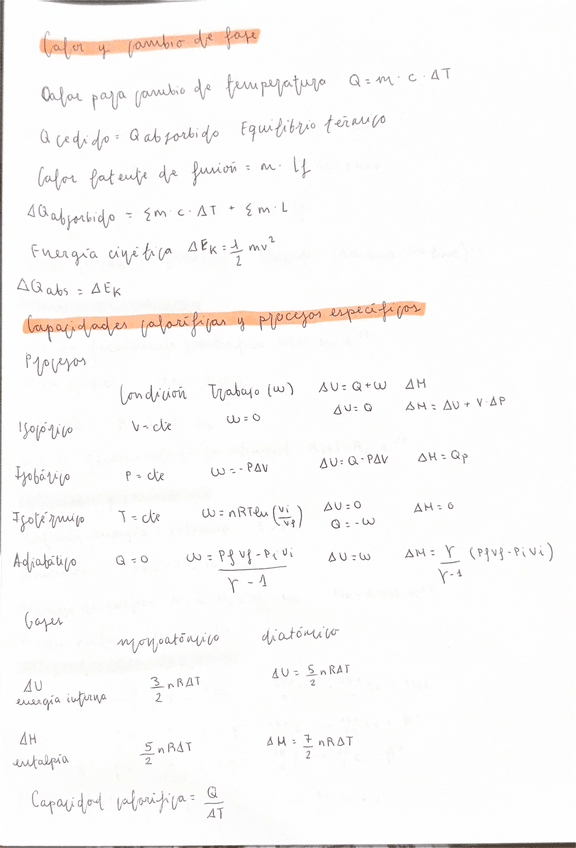 Calor y cambio de fase
Calor para cambio de temperatura Q = m · c · ΔT
Q cedido = Q absorbido Equilibrio térmico
Calor latente de fusión = m · Lf
ΔQ absorbido = Σm · c · ΔT + Σm · L
Energía cinética ΔEK = 1/2 mv²
ΔQ abs = ΔEK
Capacidades caloríficas y procesos específicos
Procesos
Condición Trabajo (w) ΔU = Q + W ΔH
Isocórico V = cte W = 0 ΔU = Q ΔH = ΔU + V · ΔP
Isobárico P = cte W = - PΔV ΔU = Q - PΔV ΔH = Qp
Isotérmico T = cte W = nRT ln (Vi/Vf) ΔU = 0 Q = -W ΔH = 0
Adiabático Q = 0 W = PfVf - PiVi / γ - 1 ΔU = W ΔH = γ / γ-1 (PfVf - PiVi)
Gases
monoatómico diatómico
ΔU energía interna 3/2 nRΔT ΔU = 5/2 nRΔT
ΔH entalpía 5/2 nRΔT ΔH = 7/2 nRΔT
Capacidad calorífica = Q/ΔT